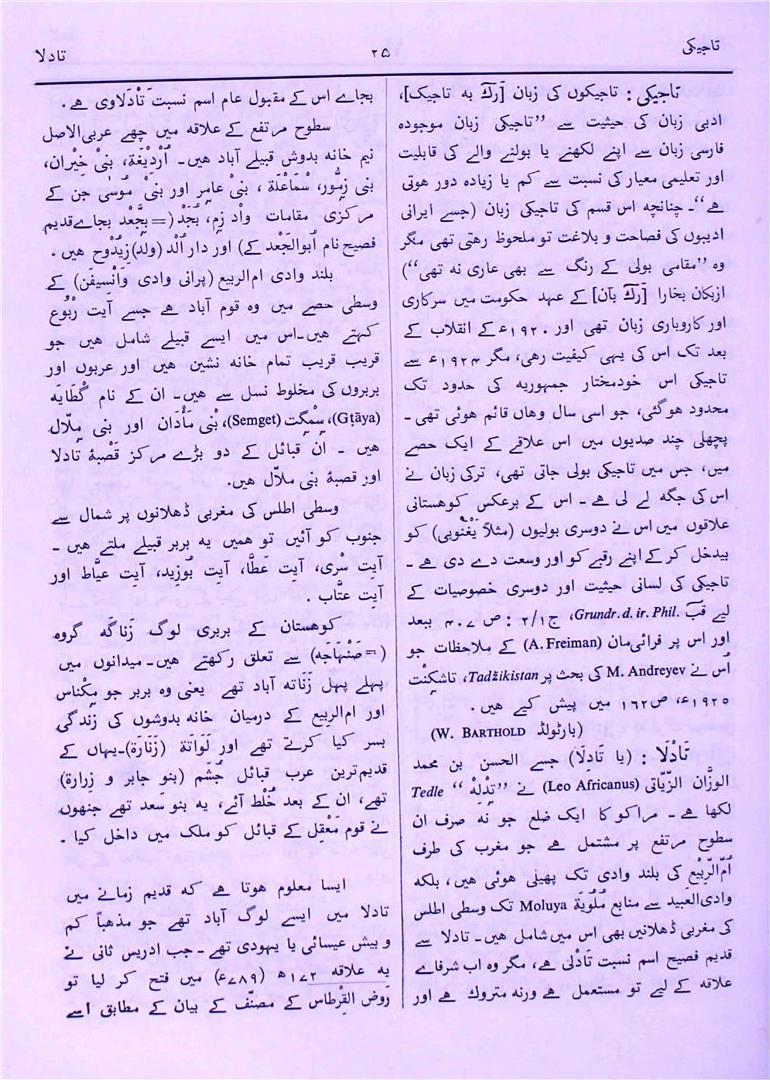 تاجیکی
۲۵
تادلا
تاجیکی : تاجیکوں کی زبان [رکّ به تاجیک]،
ادبی زبان کی حیثیت سے ’’تاجیکی زبان موجودہ
فارسی زبان سے اپنے لکھنے یا بولنے والے کی قابلیت
اور تعلیمی معیار کی نسبت سے کم یا زیادہ دور ہوتی
ہے‘‘۔ چنانچہ اس قسم کی تاجیکی زبان (جسے ایرانی
ادیبوں کی فصاحت و بلاغت تو ملحوظ رہتی تھی مگر
وہ ’’مقامی بولی کے رنگ سے بھی عاری نہ تھی‘‘)
ازبکان بخارا [رکّ بآن] کے عہد حکومت میں سرکاری
اور کاروباری زبان تھی اور ۱۹۲۰ء کے انقلاب کے
بعد تک اس کی یہی کیفیت رہی، مگر ۱۹۲۴ء سے
تاجیکی اس خودمختار جمہوریہ کی حدود تک
محدود ہوگئی، جو اسی سال وہاں قائم ہوئی تھی ۔
پچھلی چند صدیوں میں اس علاقے کے ایک حصے
میں، جس میں تاجیکی بولی جاتی تھی، ترکی زبان نے
اس کی جگہ لے لی ہے ۔ اس کے برعکس کوھستانی
علاقوں میں اس نے دوسری بولیوں (مثلاً یَغْنُوبی) کو
بیدخل کر کے اپنے رقبے کو اور وسعت دے دی ہے ۔
تاجیکی کی لسانی حیثیت اور دوسری خصوصیات کے
لیے قبّ Grundr. d. ir. Phil.، ج ۱/۲ : ص ۴۰۷ ببعد
اور اس پر فرائی مان (A. Freiman) کے ملاحظات جو
اُس نے M. Andreyev کی بحث پر Tadžikistan، تاشکِنْت
۱۹۲۵ء، ص ۱۶۲ میں پیش کیے ہیں .
(بارٹولڈ W. BARTHOLD)
تَادْلَا : (یا تَادِلَا) جسے الحسن بن محمد
الوزّان الزّیّاتی (Leo Africanus) نے ’’تِدْلِهْ Tedle ‘‘
لکھا ہے ۔ مراکو کا ایک ضلع جو نہ صرف ان
سطوح مرتفع پر مشتمل ہے جو مغرب کی طرف
اُمّ الرّبیْع کی بلند وادی تک پھیلی ہوئی ہیں، بلکہ
وادی العَبید سے منابع مُلُویَة Moluya تک وسطی اطلس
کی مغربی ڈھلانیں بھی اس میں شامل ہیں ۔ تادلا سے
قدیم فصیح اسم نسبت تَادَلی ہے، مگر وہ اب شرفاے
علاقہ کے لیے تو مستعمل ہے ورنہ متروک ہے اور
بجاے اس کے مقبول عام اسم نسبت تَادْلَاوی ہے .
سطوح مرتفع کے علاقہ میں چھے عربی الاصل
نیم خانہ بدوش قبیلے آباد ہیں ۔ اُرْدِیْغَة، بنی خَیْران،
بنی زمُّور، سْمَاعْلَة ، بنی عامِر اور بنی مُوسٰی جن کے
مرکزی مقامات واد زم، بُجَدْ (= بجَّعْد بجاے قدیم
فصیح نام ابوالجَعْد کے) اور دار اُلْد (ولد) زیْدُوح ہیں .
بلند وادی ام الربیع (پرانی وادی وَانْسِیفَن) کے
وسطی حصے میں وہ قوم آباد ہے جسے آیت رْبُوع
کہتے ہیں ۔ اس میں ایسے قبیلے شامل ہیں جو
قریب قریب تمام خانہ نشین ہیں اور عربوں اور
بربروں کی مخلوط نسل سے ہیں ۔ ان کے نام گْطَایَه
(Gṭāya)، سِمْگت (Semget)، بْنی مَاْدَان اور بنی مِلّال
ہیں ۔ ان قبائل کے دو بڑے مرکز قَصْبۂ تادلا
اور قصبۂ بنی ملّال ہیں.
وسطی اطلس کی مغربی ڈھلانوں پر شمال سے
جنوب کو آئیں تو ہمیں یہ بربر قبیلے ملتے ہیں ۔
آیت سْری، آیت عَطَّا، آیت بُوزِید، آیت عیّاط اور
آیت عتّاب .
کوھستان کے بربری لوگ زناگه گروہ
(= صَنْہاجَه) سے تعلق رکھتے ہیں ۔ میدانوں میں
پہلے پہل زَناتَه آباد تھے یعنی وہ بربر جو مِکْناس
اور ام الرَبِیع کے درمیان خانہ بدوشوں کی زندگی
بسر کیا کرتے تھے اور لَوَاتَة (زَنَارَة)۔ یہاں کے
قدیم ترین عرب قبائل جُشَم (بنو جابر و زِرارة)
تھے، ان کے بعد خُلْط آئے، یہ بنو سَعد تھے جنھوں
نے قوم مَعْقل کے قبائل کو ملک میں داخل کیا .
ایسا معلوم ہوتا ہے کہ قدیم زمانے میں
تادلا میں ایسے لوگ آباد تھے جو مذہباً کم
و بیش عیسائی یا یہودی تھے ۔ جب ادریس ثانی نے
یہ علاقہ ۱۷۲ھ (۷۸۹ء) میں فتح کر لیا تو
رَوض القِرْطاس کے مصنّف کے بیان کے مطابق اسے